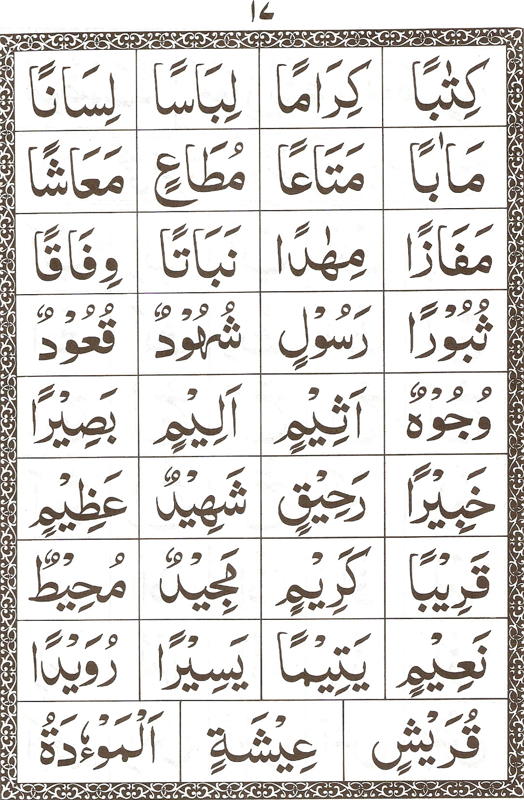 ١٧
كِتٰبًا كِرَامًا لِبَاسًا لِسَانًا
مَاٰبًا مَتَاعًا مُطَاعٍ مَعَاشًا
مَفَازًا مِهٰدًا نَبَاتًا وِفَاقًا
ثُبُوْرًا رَسُوْلٍ شُهُوْدٌ قُعُوْدٌ
وُجُوْهٌ اَثِيْمٍ اَلِيْمٍ بَصِيْرًا
خَبِيْرًا رَحِيْقٍ شَهِيْدٌ عَظِيْمٍ
قَرِيْبًا كَرِيْمٍ مَجِيْدٌ مُحِيْطٌ
نَعِيْمٍ يَتِيْمًا يَسِيْرًا رُوَيْدًا
قُرَيْشٍ عِيْشَةٍ اَلْمَوْءٗدَةُ